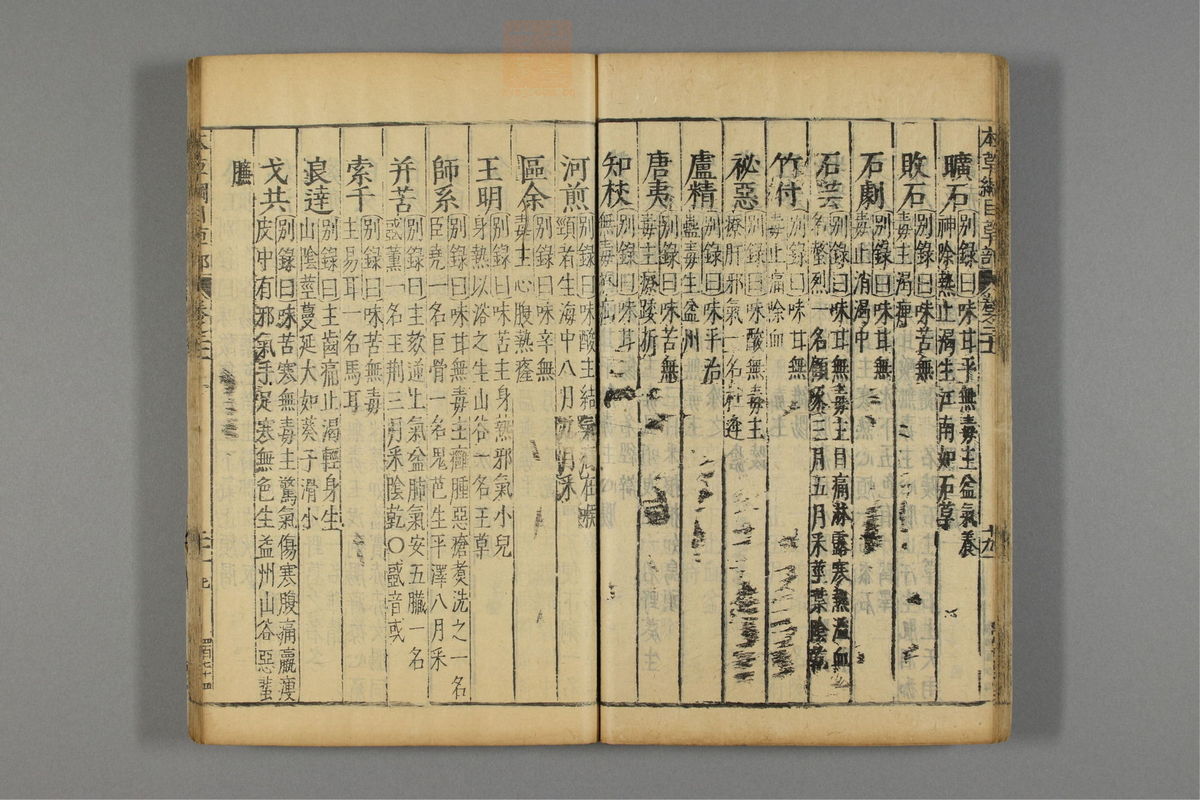 本草綱目草部
曠石
別錄曰味甘平無毒主益氣養
神除熱止渴生江南如石草
敗石
別錄曰味苦無
毒主渴痺
石劇
別錄曰味甘無
毒止消渴中
石芸
別錄曰味甘無毒主目痛淋露寒熱溢血
名螫烈一名顧啄三月五月采莖葉陰乾
竹付
別錄曰味甘無
毒止痛除血
祕惡
別錄曰味酸無毒主
療肝邪氣一名杜逢
盧精
別錄曰味平治
蠱毒生益州
唐夷
別錄曰味苦無
毒主療踒折
知杖
別錄曰味甘
無毒
河煎
別錄曰味酸主結氣在喉
頸者生海中八月
區余
別錄曰味辛無
毒主心腹熱癃
王明
別錄曰味苦主身熱邪氣小兒
身熱以浴之生山谷一名王草
師系
別錄曰味甘無毒主癰腫惡瘡煮洗之一名
臣堯一名巨骨一名鬼芭生平澤八月采
并苦
別錄曰主欬逆上氣益肺氣安五臟一名
蜮薰一名玉荆三月采陰乾○蜮音或
索干
別錄曰味苦無毒
主易耳一名馬耳
良達
別錄曰主齒痛止渴輕身生
山陰莖蔓延大如葵子滑小
弋共
別錄曰味苦寒無毒主驚氣傷寒腹痛羸瘦
皮中有邪氣手足寒無色生益州山谷惡蜚
䗪